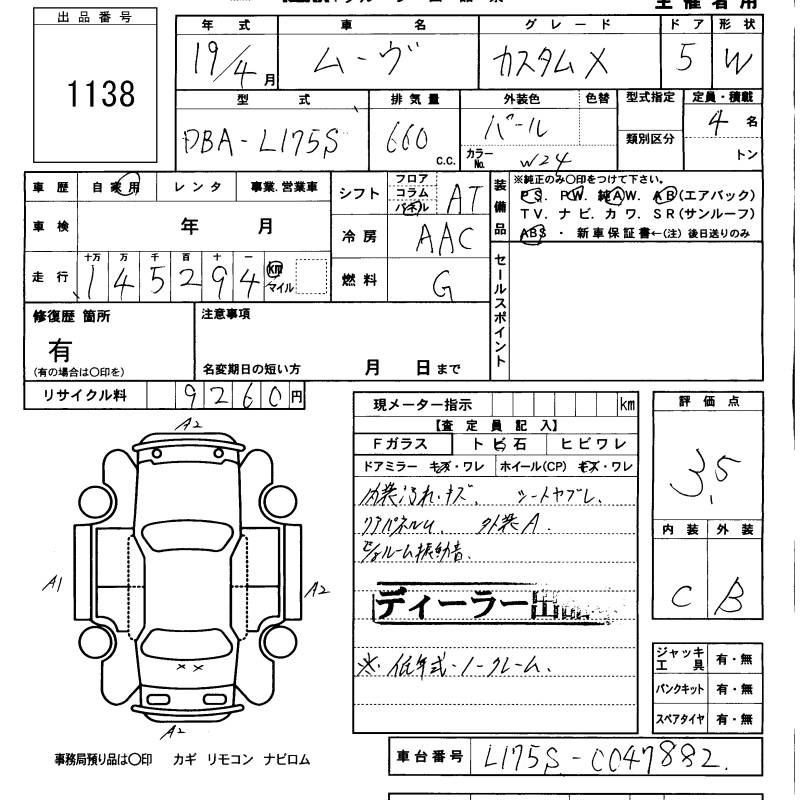 主催者用
出品番号
1138
年式 車名 グレード ドア 形状
19/4月 ムーヴ カスタムX 5 W
型式 排気量 外装色 色替 型式指定 定員・積載
DBA-L175S 660 c.c. パール カラーNo. W24 類別区分 4名 トン
車歴 自家用 レンタ 事業.営業車
シフト フロア コラム パネル AT
装備品 ※純正のみ○印をつけて下さい。
PS. PW. 純AW. AB(エアバック)
TV. ナビ. カワ. SR(サンルーフ)
ABS ・ 新車保証書←(注) 後日送りのみ
車検 年 月
冷房 AAC
走行 十万 万 千 百 十 一
145294 km マイル
燃料 G
セールスポイント
修復歴 箇所
有
(有の場合は○印を)
注意事項
名変期日の短い方 月 日まで
リサイクル料 9260円
現メーター指示 km
【査定員記入】
Fガラス トビ石 ヒビワレ
ドアミラー キズ・ワレ ホイール(CP) キズ・ワレ
外装汚れ・キズ、 シートヤブレ、
リアパネルU、 外装A.
振動音.
ディーラー出品
※.低年式・ノークレーム.
評価点
3.5
内装 外装
C B
ジャッキ工具 有・無
パンクキット 有・無
スペアタイヤ 有・無
A2
A1
A2
××
A2
事務局預り品は○印 カギ リモコン ナビロム
車台番号 L175S-0047882.